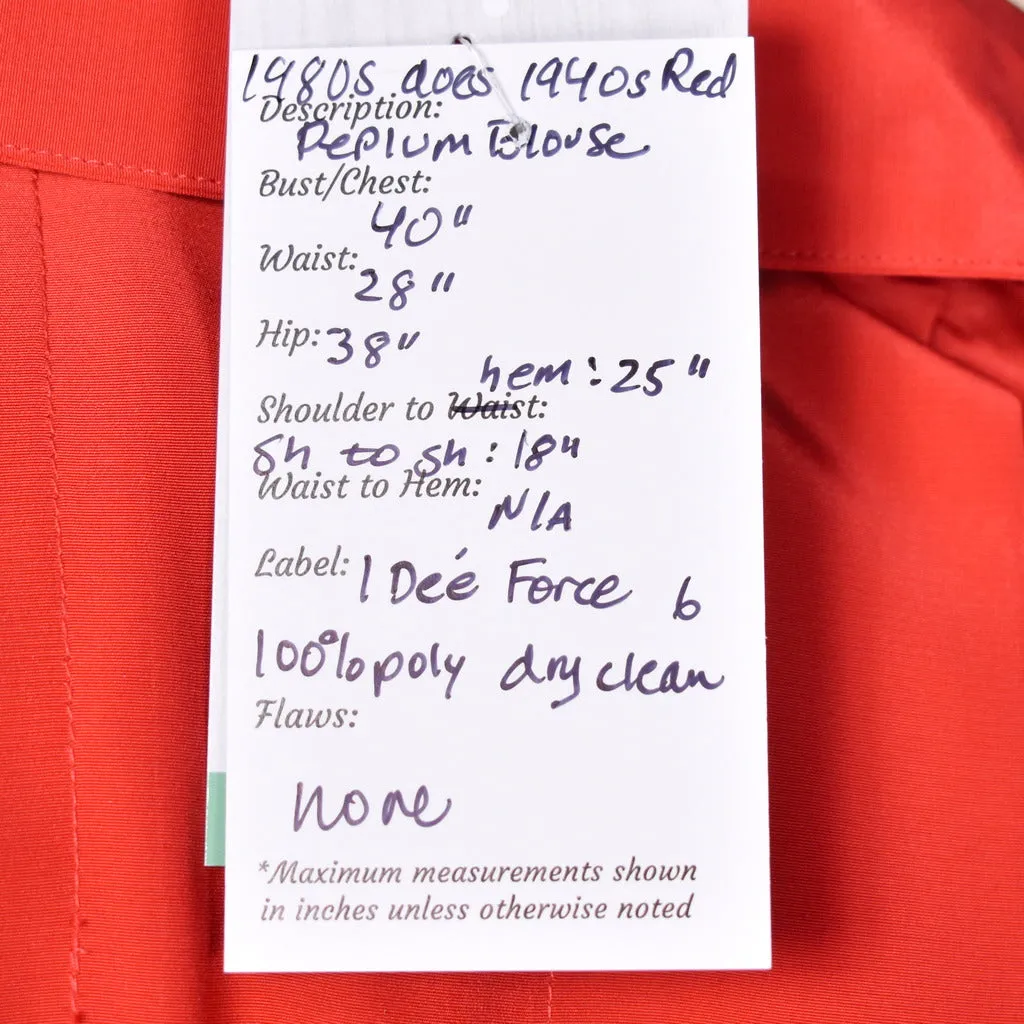 1980s does 1940s Red
Description:
Peplum Blouse
Bust/Chest:
40"
Waist:
28"
Hip: 38"
hem: 25"
Shoulder to Waist:
Sh to sh: 18"
Waist to Hem:
N/A
Label: I Deé Force 6
100% poly dry clean
Flaws:
none
*Maximum measurements shown
in inches unless otherwise noted